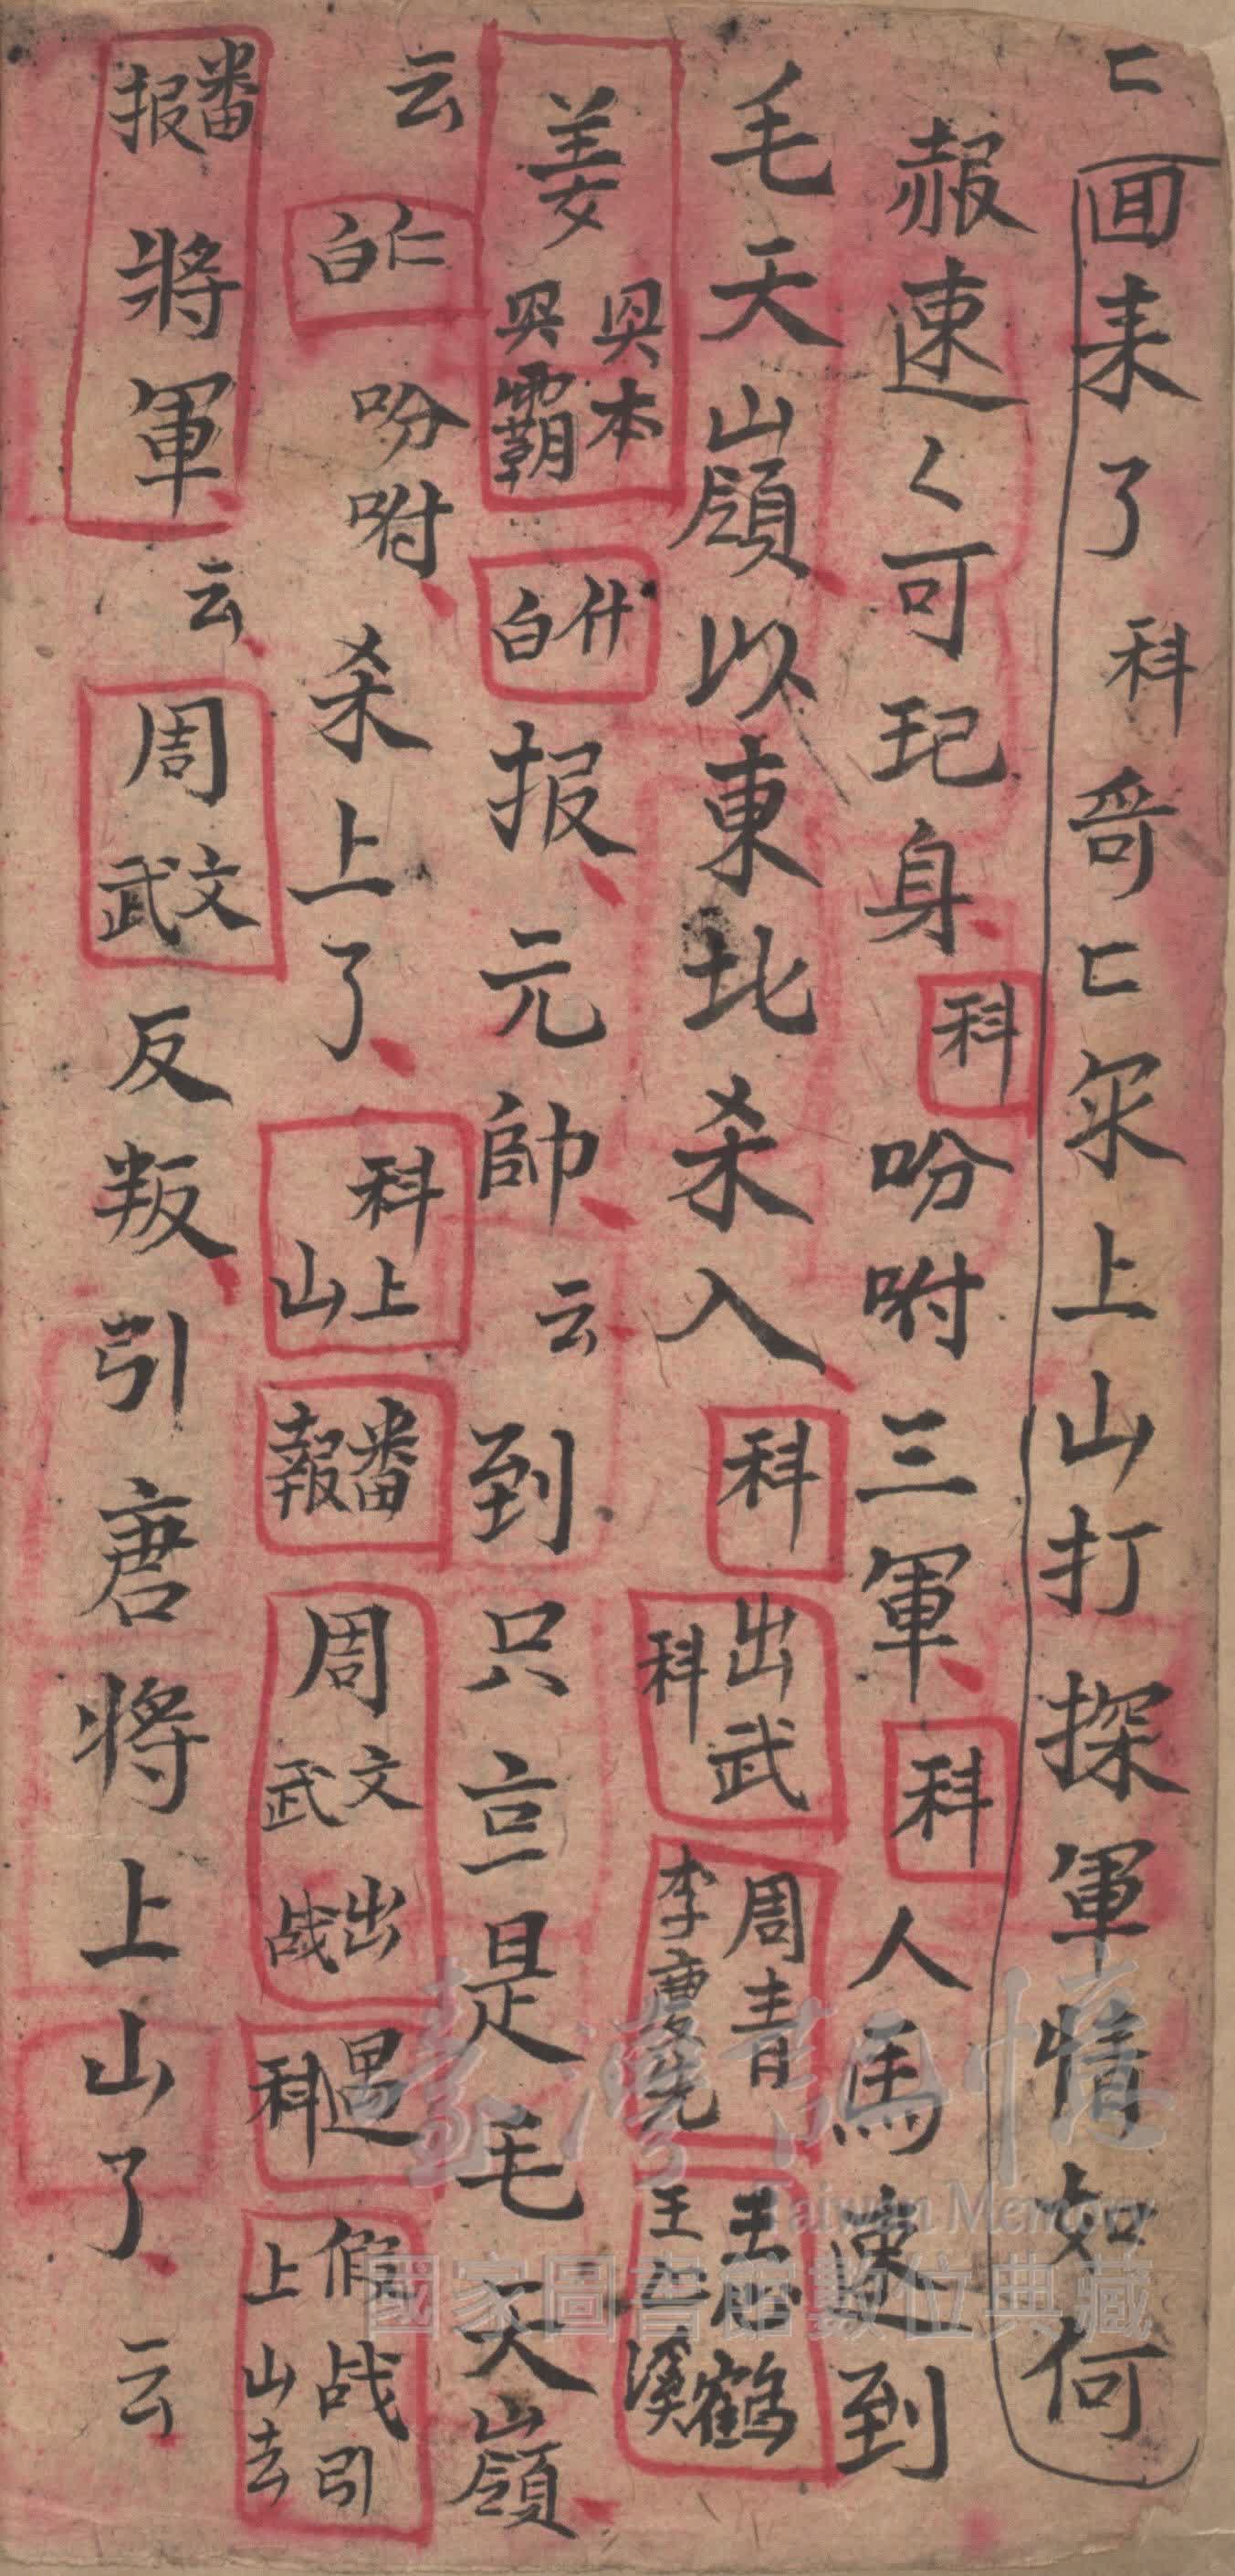 匕回耒了科哥匕尔上山打探軍情如何
赧速く可玘身科吩咐三軍科人馬速到
毛天山嶺以東北杀入科出武科周青李慶先王心鶴王心溪
姜興本興霸什白报元帥云到只言是毛天山嶺
云仁白吩咐杀上了科上山番報周文武出战遇科假战引上山去
番报將軍云周文武反叛引唐将上山了云
臺灣記憶
Taiwan Memory
國家圖書館數位典藏